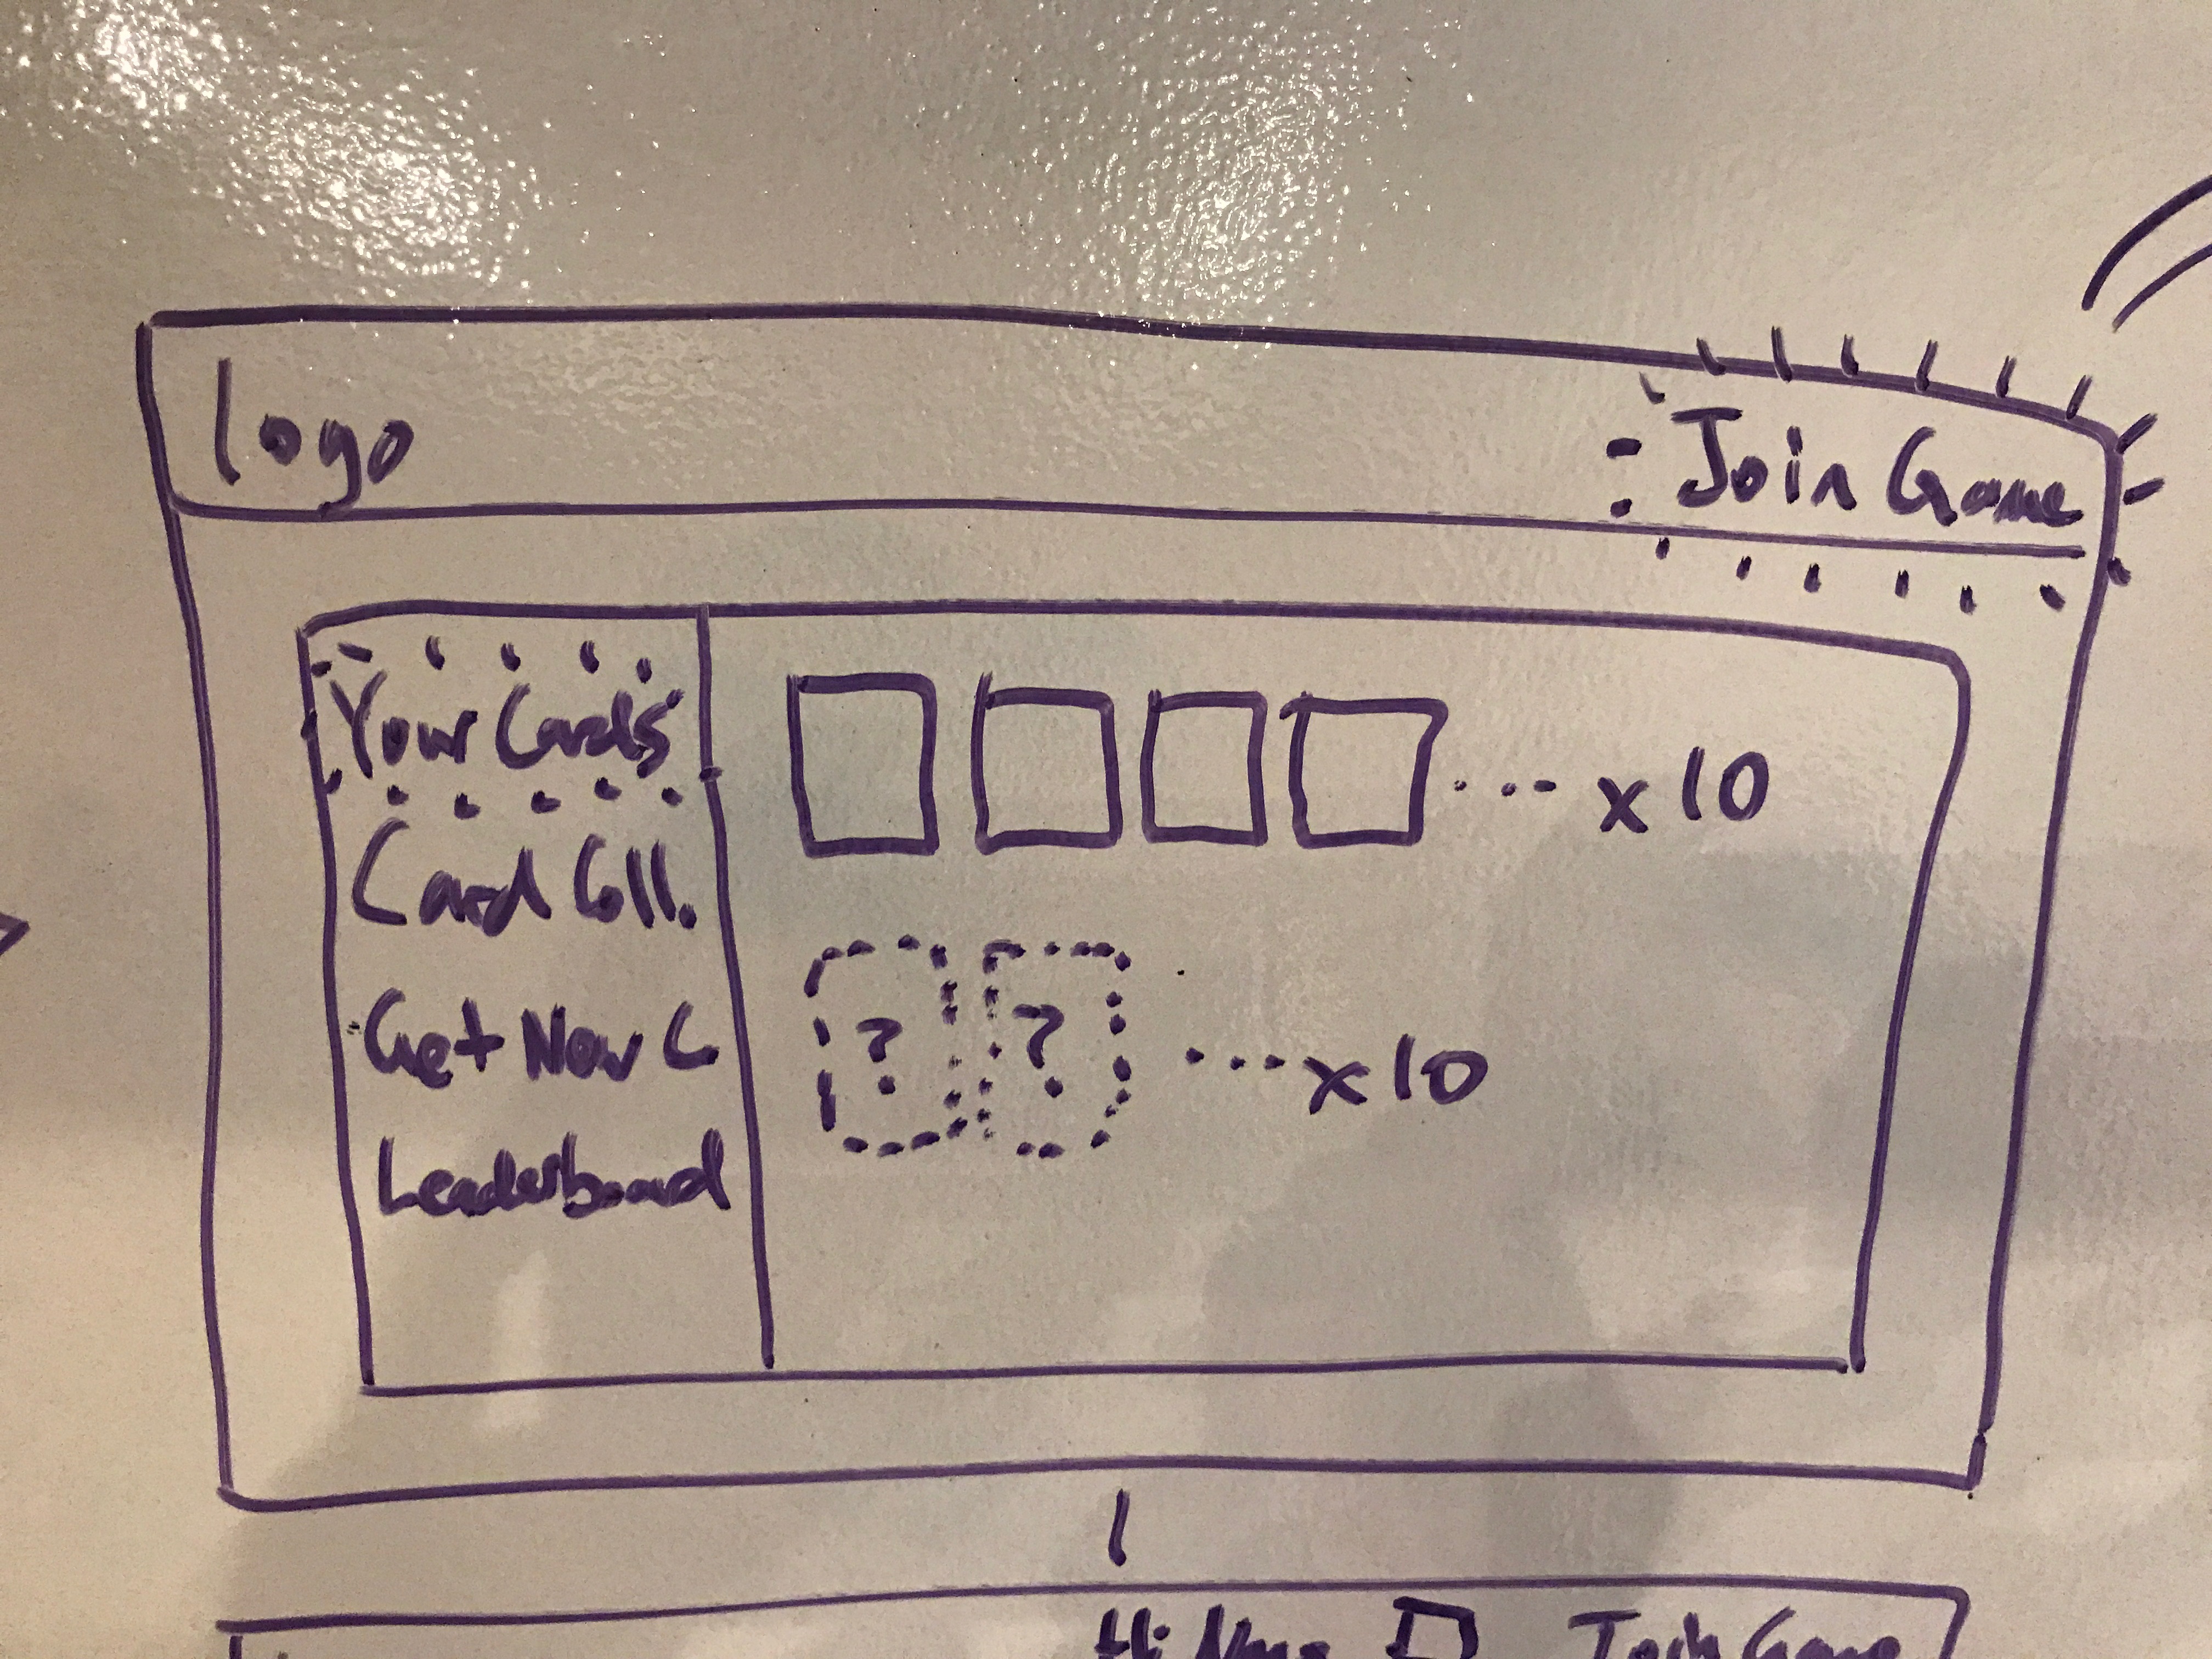 logo
Join Game
Your Cards
... x10
Card Coll.
? ? ... x10
Get New C
Leaderboard
Hi Join Game